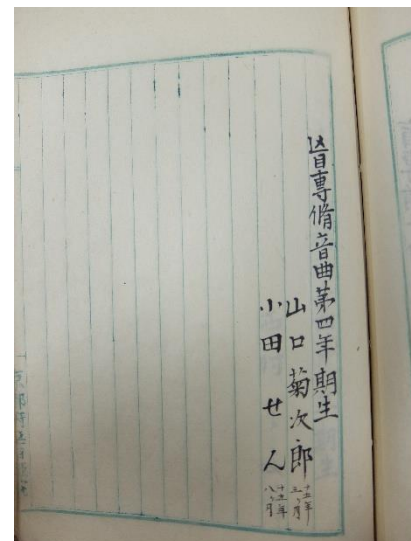 盲專脩音曲第四年期生
山口菊次郎
十五年
三ヶ月
小田せん
八ヶ月